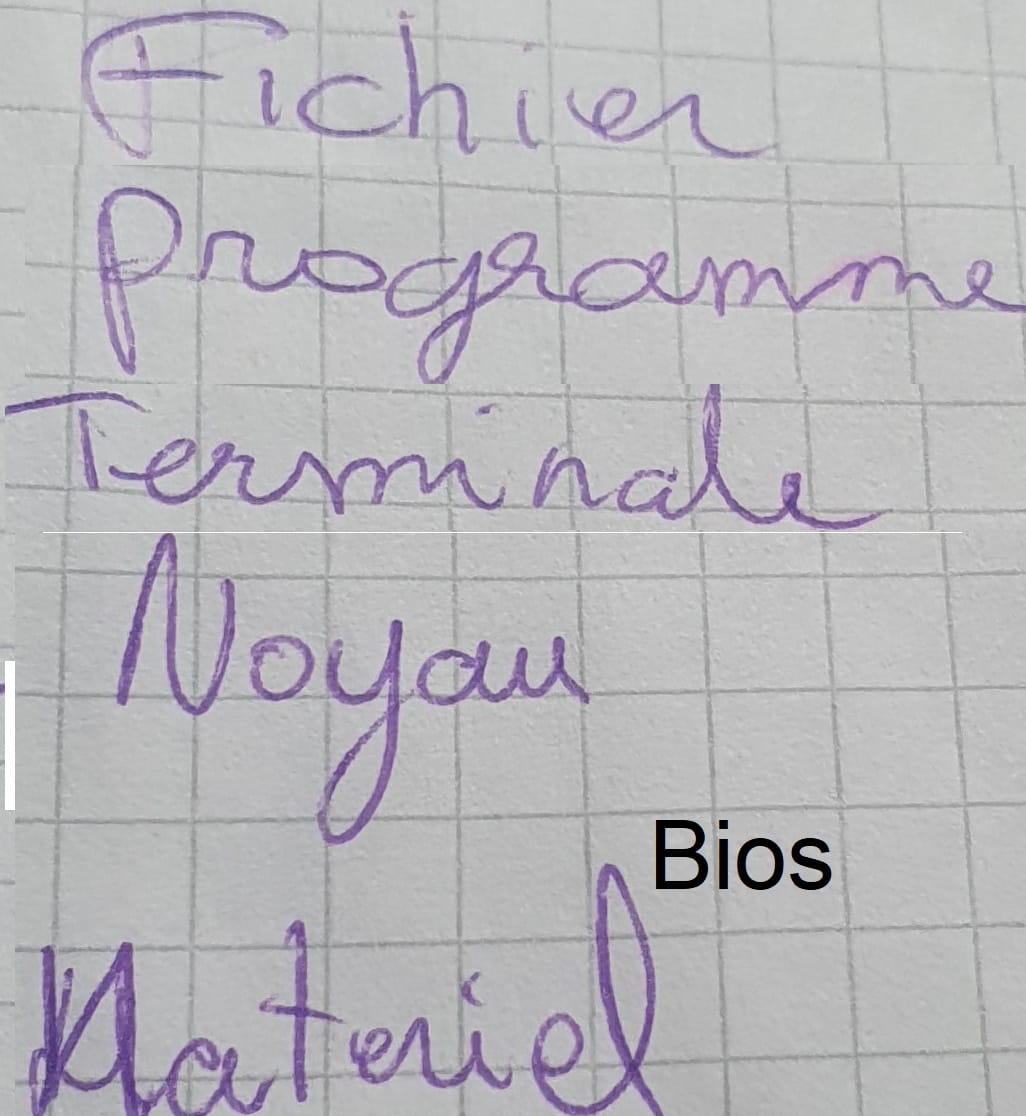 Fichier
programme
Terminale
Noyau
Bios
Materiel